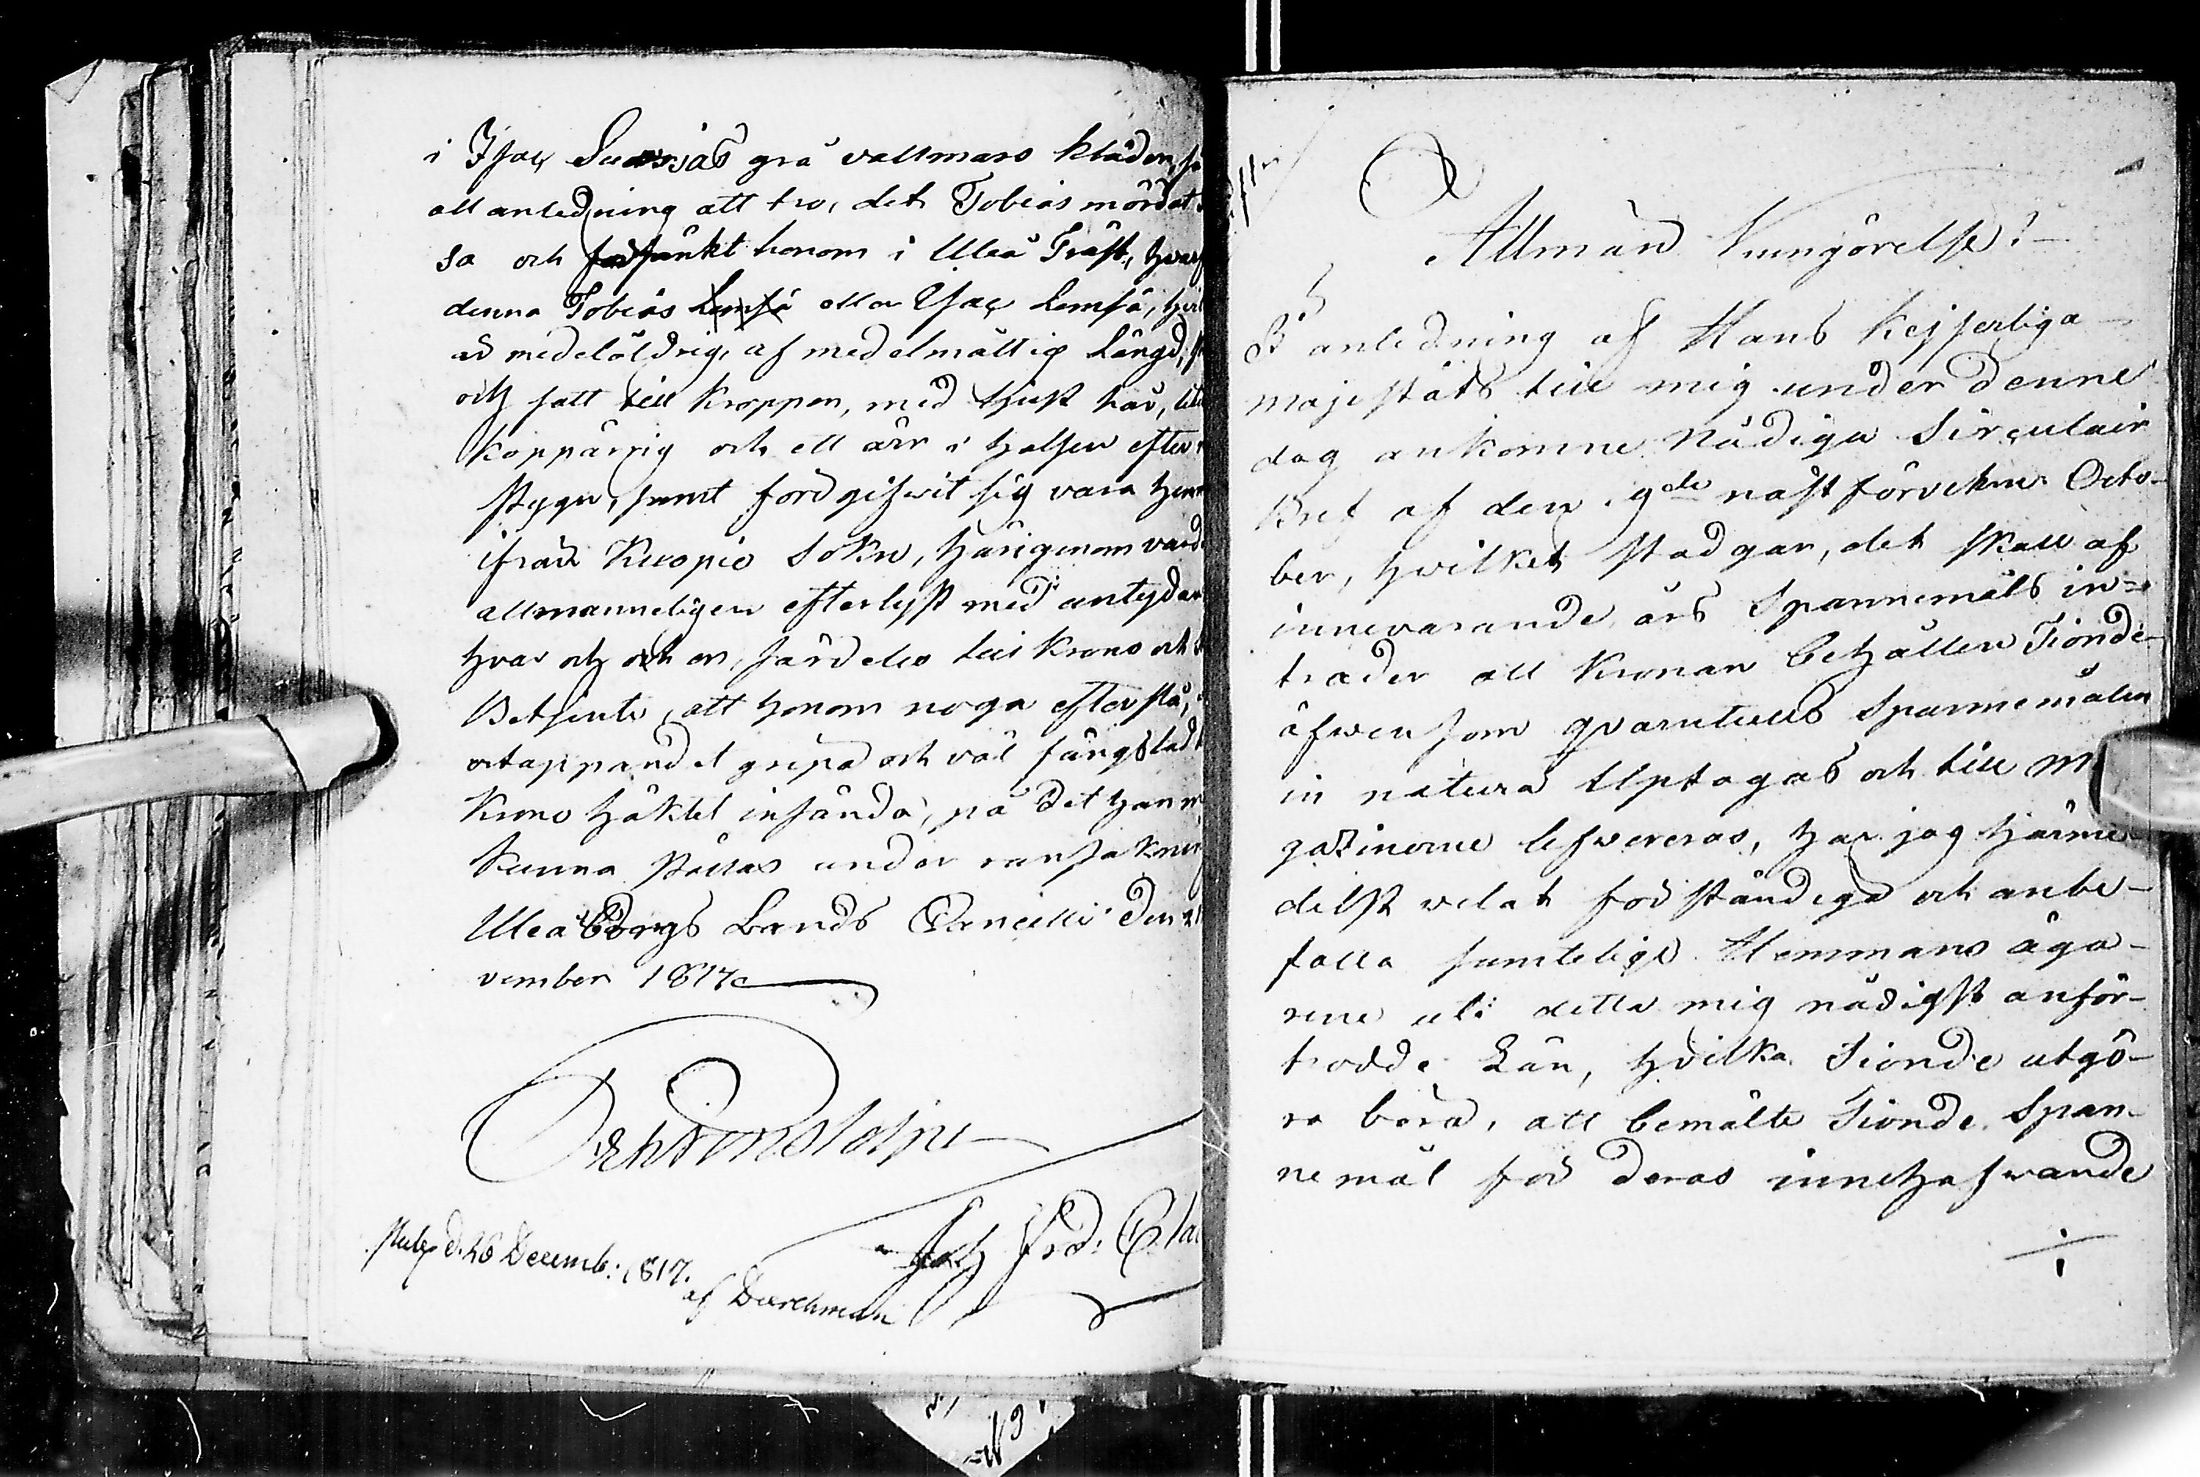 i Isac Suorsas grå vallmars kläder, så
all anledning att tro, det Tobias mördat
sa och försänkt honom i Uleå Träsk, hvarf
denna Tobias Lemsä eller Isac Lemsä, hvil
är medelåldrig, af medelmåttig Längd,
och satt till Kroppen, med ljust hår, lit
koppärrig och ett ärr i halsen efter
stygn, samt föregifwit sig vara hem
ifrån Kuopio Sokn, härigenom varde
allmänneligen efterlyst med antydan
hvar och och en, särdeles till Krono och
Betjente, att honom noga efterslå,
ertappandet gripa och väl fängslad
Krono häktet insända, på det han m
kunna ställas under ransakning
Uleåborgs Lands Cancelli den 21
vember 1817

Joh Frd:
d. 26 Decemb: 1817.
af

Allmän Kungörelse!
I anledning af Hans Kejserliga
Majestäts till mig under denne
dag ankomne Nådiga Circulair
Bref af den 9de näst förvekne Octo-
ber, hvilket stadgar, det skall af
innevarande års Spannemåls in-
träder all Kronan behållen Tionde
äfwensom qvarntulls Spannemålen
in natura Uptagas och till M
gazinerne lefwereras, har jag härme
delst velat förständiga och anbe-
falla samtelige Hemmans äga-
rene uti detta mig nådigst anför-
trodde Län, hvilka Tionde utgö-
ra böra, att bemälte Tionde Span-
nemål för deras innehafwande